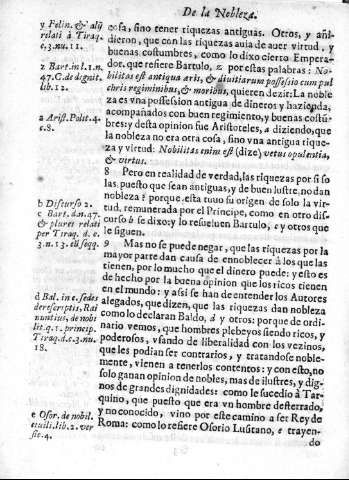 De la Nobleza.
y Felin. & alij
relati à Tiraq.
c.3.nu.11.
z Bart.in l.1.n.
47.C.de dignit.
lib.12.
a Arist.Polit.4.
c.8.
b Discurso 2.
c Bart. d.n.47.
& plures relati
per Tiraq. d. c.
3. n. 13. et seqq.
d Bal. in c. sedes
de rescriptis, Rai
nuntius, de nobi
lit.q. 1. princip.
Tiraq.d.c.3.nu.
18.
e Osor. de nobil.
ciuili.lib.2. ver
sic.4.
cosa, sino tener riquezas antiguas. Otros, y añi-
dieron, que con las riquezas auia de auer virtud, y
buenas costumbres, como lo dixo cierto Empera-
dor. que refiere Bartulo, z por estas palabras: No-
bilitas est antiqua aris, & diuitiarum possessio cum pul
chris regiminibus, & moribus, quieren dezir: La noble
za es vna possession antigua de dineros y hazienda,
acompañados con buen regimiento, y buenas costũ
bres: y desta opinion fue Aristoteles, a diziendo, que
la nobleza no era otra cosa, sino vna antigua rique-
za y virtud: Nobilitas enim est (dize) vetus opulentia,
& virtus.
8 Pero en realidad de verdad, las riquezas por si so
las, puesto que sean antiguas, y de buen lustre, no dan
nobleza? porque esta tuuo su origen de solo la vir-
tud, remunerada por el Principe, como en otro dis-
curso b se dixo: y lo resueluen Bartulo, c y otros que
le siguen.
9 Mas no se puede negar, que las riquezas por la
mayor parte dan causa de ennoblecer à los que las
tienen, por lo mucho que el dinero puede: y esto es
de hecho por la buena opinion que los ricos tienen
en el mundo: y assi se han de entender los Autores
alegados, que dizen, que las riquezas dan nobleza
como lo declaran Baldo, d y otros: porque de ordi-
nario vemos, que hombres plebeyos siendo ricos, y
poderosos, vsando de liberalidad con los vezinos,
que les podian ser contrarios, y tratandose noble-
mente, vienen a tenerlos contentos: y con esto, no
solo ganan opinion de nobles, mas de ilustres, y dig-
nos de grandes dignidades: como le sucedio à Tar-
quino, que puesto que era vn hombre desterrado,
y no conocido, vino por este camino a ser Rey de
Roma: como lo refiere Osorio Lusitano, e trayen-
do